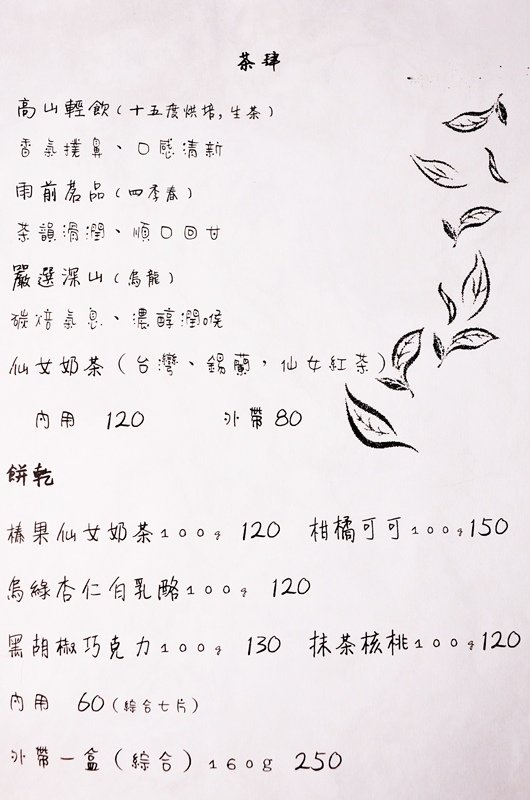 茶肆
高山輕飲(十五度烘培,生茶)
香氣撲鼻、口感清新
雨前茗品(四季春)
茶韻滑潤、順口回甘
嚴選深山(烏龍)
碳焙氣息、濃醇潤喉
仙女奶茶(台灣、錫蘭,仙女紅茶)
內用 120 外帶80
餅乾
榛果仙女奶茶100g 120 柑橘可可100g150
烏綠杏仁白乳酪100g 120
黑胡椒巧克力100g 130 抹茶核桃100g120
內用 60(綜合七片)
外帶一盒(綜合)160g 250